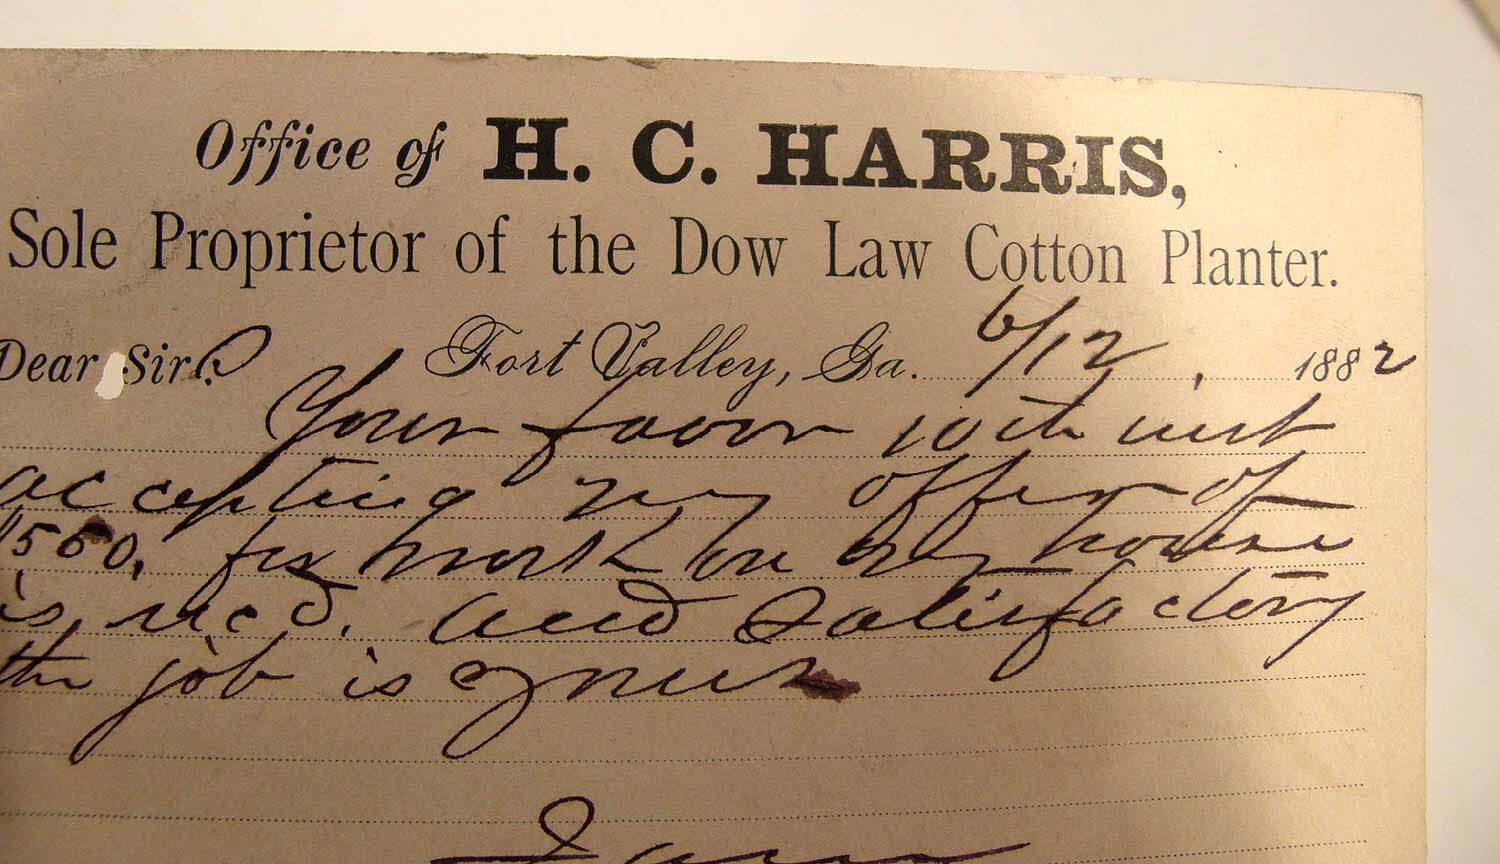 Office of H. C. HARRIS,
Sole Proprietor of the Dow Law Cotton Planter.
Dear Sir: Fort Valley, Ga. 6/12, 1882
Your favor 10th inst
accepting my offer of
$550. for work on my house
is recd. and satisfactory
the job is yours
Yours